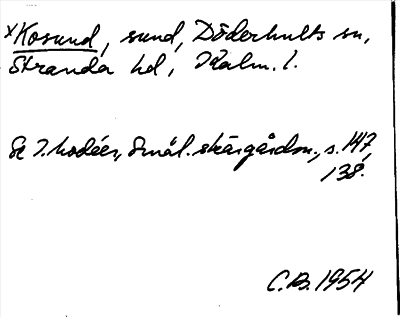 ×Kosund, sund, Döderhults sn,
Stranda hd, Kalm. l.
Se I. Modéer, Smål. skärgårdsn., s. 147,
138.
C.B. 1954